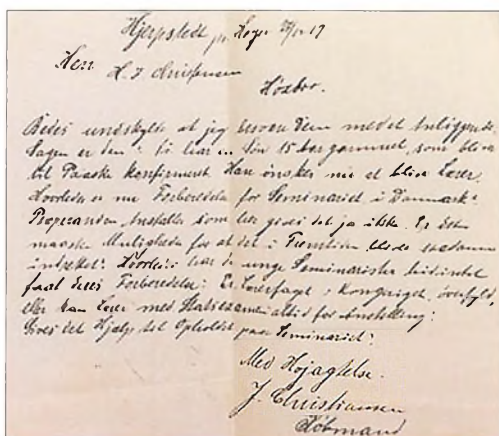 Hjerpstedt pr. Hoyer 29/12 19
Herr H. J. Christensen
Höxbro.
Bedes undskylde at jeg besvær Dem med et Anliggende
Sagen er den: Vi har en Sön 15 bar gammel, som bliver
til Paaske konfirmert. Han ønsker nu at blive Lærer.
Hvorledes er nu Forberedelse for Seminariet i Danmark?
Præparanden Anstalter som her gives det ja ikke. Er der
maaske Mulighed for at det i Fremtiden blev saadanne
indrettet? Hvorledes har de unge Seminarister hidindtil
faaet deres Forberedelse? Er Lærerfaget i Kongeriget overfyldt,
eller kan Lærer med Statsexamen altid for Anstelling?
Gives det Hjælp til Opholdet paa Seminariet?
Med Højagtelse.
J. Christiansen
Købmand